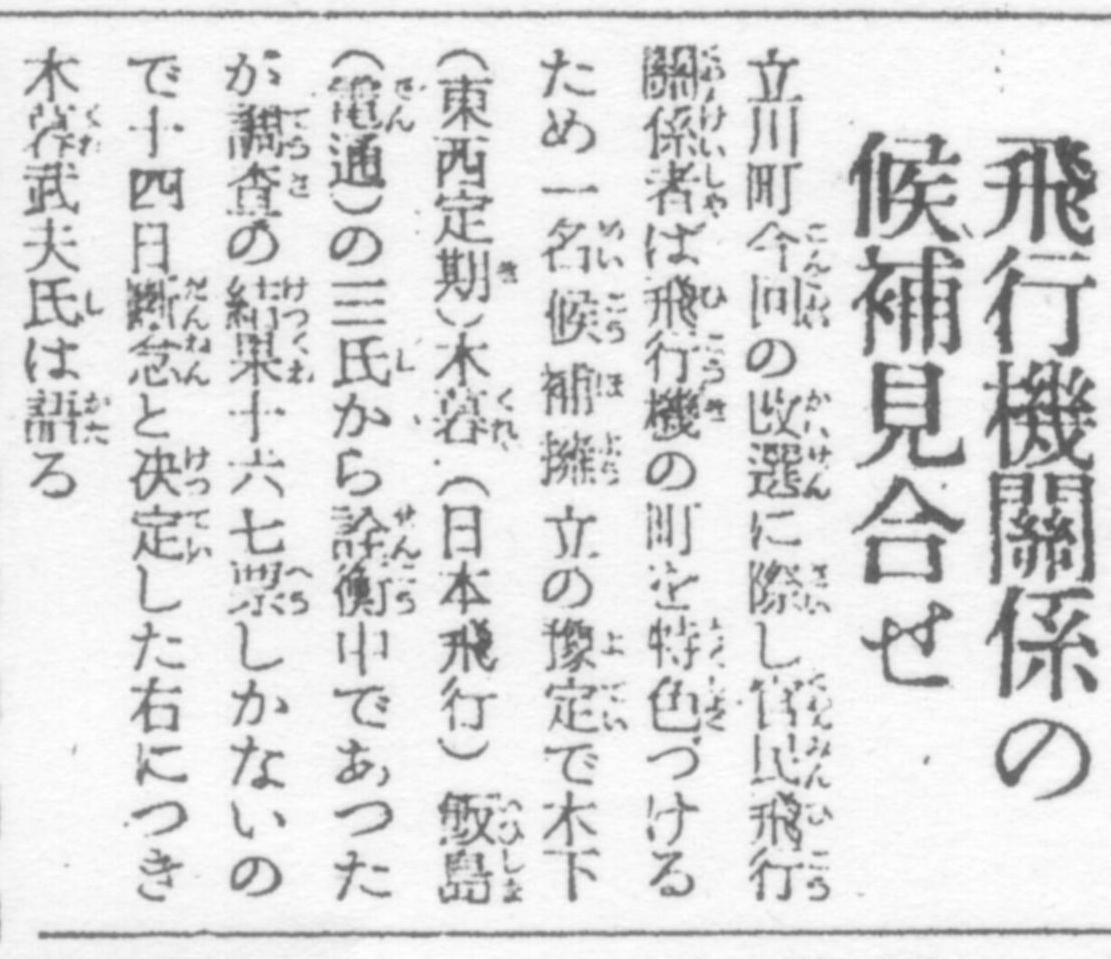 飛行機關係の
候補見合せ
立川町今回の改選に際し官民飛行
關係者は飛行機の町を特色づける
ため一名候補擁立の豫定で木下
(東西定期)木暮(日本飛行)飯島
(電通)の三氏から詮衡中であつた
が調査の結果十六七票しかないの
で十四日斷念と決定した右につき
木暮武夫氏は語る